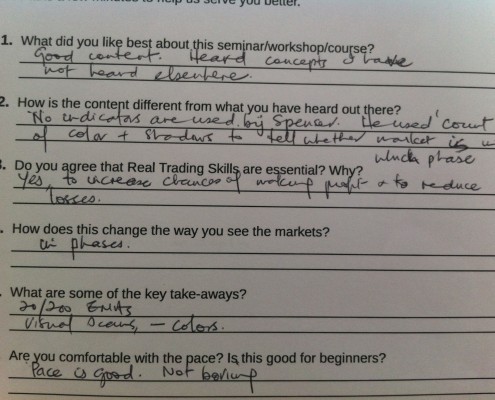 a few minutes to help us serve you better.
1. What did you like best about this seminar/workshop/course?
Good content. Heard concepts I have
not heard elsewhere.
2. How is the content different from what you have heard out there?
No indicators are used by Spencer. He used count
of color + shadows to tell whether market is in
which phase
3. Do you agree that Real Trading Skills are essential? Why?
Yes, to increase chances of making profit & to reduce
losses.
How does this change the way you see the markets?
in phases.
What are some of the key take-aways?
20/200 EMAs
Visual – colors.
Are you comfortable with the pace? Is this good for beginners?
Pace is good. Not boring